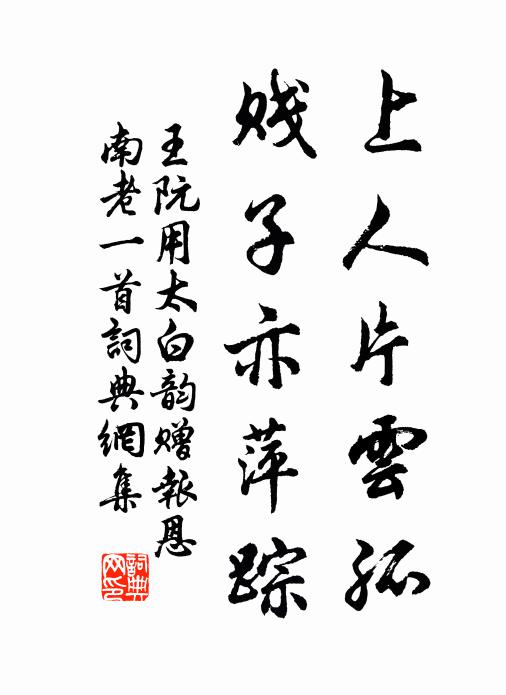 上人片雲孤
賎子亦萍踪
王阮用太白韵赠報恩
南老一首詞典網集
詞典
网印